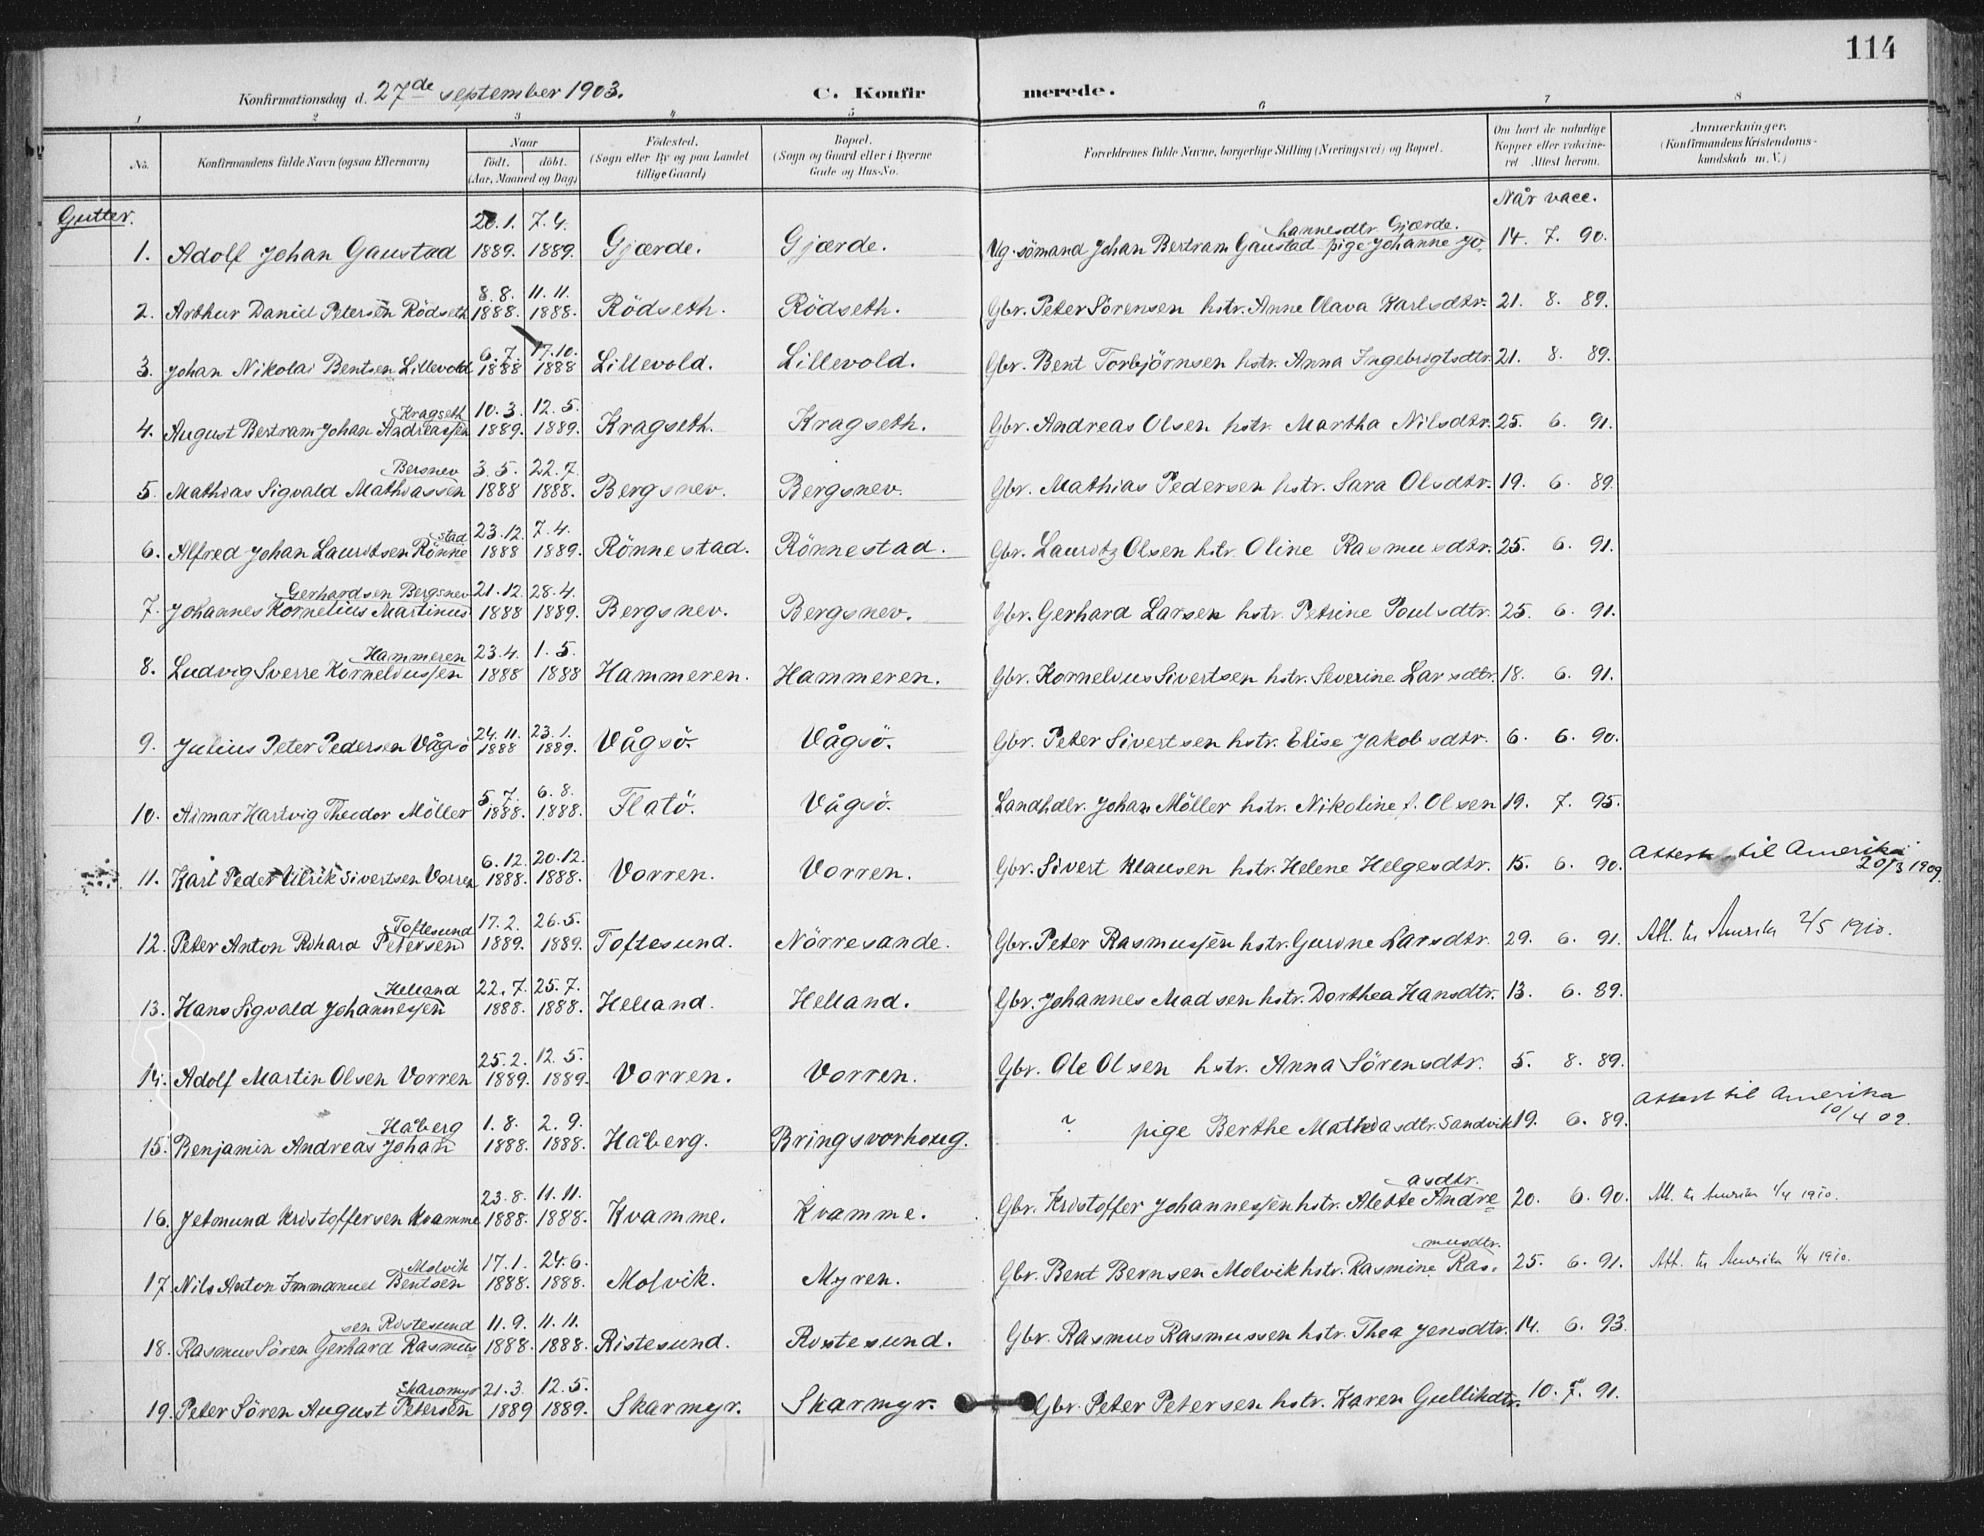 114
Konfirmationsdag d. 27de september 1903. C. Konfirmerede.
1 2 3 4 5 6 7 8
No. Konfirmandens fulde Navn (ogsaa Efternavn) Naar født. døbt. (Aar, Maaned og Dag) Fødested. (Sogn eller By og paa Landet tillige Gaard) Bopæl. (Sogn og Gaard eller i Byerne Gade og Hus-No. Forældrenes fulde Navne, borgerlige Stilling (Næringsvei) og Bopæl. Om havt de naturlige Kopper eller vakcineret Attest herom. Anmærkninger. (Konfirmandens Kristendomskundskab m. V.)
Når vacc.
Gutter.
1. Adolf Johan Gaustad 20.1. 1889. 7.4. 1889. Gjærde. Gjærde. Ug. sömand Johan Bertram Gaustad pige Johanne Johannesdtr Gjærde. 14. 7. 90.
2. Arthur Daniel Petersen Rödseth 8.8. 1888. 11.11. 1888. Rödseth. Rödseth. Gbr. Peter Sörensen hstr. Anne Olava Karlsdtr. 21. 8. 89.
3. Johan Nikolai Bentsen Lillevold 6.7. 1888 17.10. 1888 Lillevold. Lillevold. Gbr. Bent Torbjörnsen hstr. Anna Ingebrigtsdtr. 21. 8. 89.
4. August Bertram Johan Andreassen Kragseth 10.3. 1889. 12.5. 1889. Kragseth. Kragseth. Gbr. Andreas Olsen hstr. Martha Nilsdtr. 25. 6. 91.
5. Mathias Sigvald Mathiassen Bersnev 3.5. 1888 22.7. 1888. Bergsnev. Bergsnev. Gbr. Mathias Pedersen hstr. Sara Olsdtr. 19. 6. 89.
6. Alfred Johan Lauritsen Rönnestad 23.12. 1888 7.4. 1889. Rönnestad. Rönnestad. Gbr. Lauritz Olsen hstr. Oline Rasmusdtr. 25. 6. 91.
7. Johannes Kornelius Martinus Gerhardsen Bergsnev 21.12. 1888 28.4. 1889. Bergsnev. Bergsnev. Gbr. Gerhard Larsen hstr. Petrine Poulsdtr. 25. 6. 91.
8. Ludvig Sverre Korneliussen Hammeren 23.4. 1888 1.5. 1888 Hammeren. Hammeren. Gbr. Kornelius Sivertsen hstr. Severine Larsdtr. 18. 6. 91.
9. Julius Peter Pedersen Vågsö 24.11. 1888 23.1. 1889. Vågsö. Vågsö. Gbr. Peter Sivertsen hstr. Elise Jakobsdtr. 6. 6. 90.
10. Aimar Hartvig Theodor Möller 5.7. 1888. 6.8. 1888. Flatö. Vågsö. Landhdlr. Johan Möller hstr. Nikoline f. Olsen 19. 7. 95.
11. Karl Peder Ulrik Sivertsen Vorren 6.12. 1888. 20.12. 1888. Vorren. Vorren. Gbr. Sivert Klausen hstr. Helene Helgesdtr. 15. 6. 90. Attest til Amerika 20/3 1909.
12. Peter Anton Rikard Petersen Toftesund 17.2. 1889. 26.5. 1889. Toftesund. Nörresande. Gbr. Peter Rasmussen hstr. Gurine Larsdtr. 29. 6. 91. Att. til Amerika 2/5 1910.
13. Hans Sigvald Johannessen Helland 22.7. 1888. 25.7. 1888. Helland. Helland. Gbr. Johannes Madsen hstr. Dorthea Hansdtr. 13. 6. 89.
14. Adolf Martin Olsen Vorren 25.2. 1889. 12.5. 1889. Vorren. Vorren. Gbr. Ole Olsen hstr. Anna Sörensdtr. 5. 8. 89.
15. Benjamin Andreas Johan Håberg 1.8. 1888. 2.9. 1888. Håberg. Bringsvorhoug. ? pige Berthe Mathiasdtr. Sandvik 19. 6. 89. Attest til Amerika 10/4 09.
16. Jetmund Kristoffersen Kvamme 23.8. 1888. 11.11. 1888. Kvamme. Kvamme. Gbr. Kristoffer Johannessen hstr. Alette Andreasdtr. 20. 6. 90. Att. til Amerika 1/4 1910.
17. Nils Anton Immanuel Bentsen Molvik 17.1. 1888. 24.6. 1888. Molvik. Myren. Gbr. Bent Bernsen Molvik hstr. Rasmine Rasmusdtr. 25. 6. 91. Att. til Amerika 1/4 1910.
18. Rasmus Sören Gerhard Rasmussen Ristesund 11.9. 1888. 11.11. 1888. Ristesund. Ristesund. Gbr. Rasmus Rasmussen hstr. Thea Jensdtr. 14. 6. 93.
19. Peter Sören August Petersen Skarmyr 21.3. 1889 12.5. 1889. Skarmyr. Skarmyr. Gbr. Peter Petersen hstr. Karen Gullikdtr. 10. 7. 91.